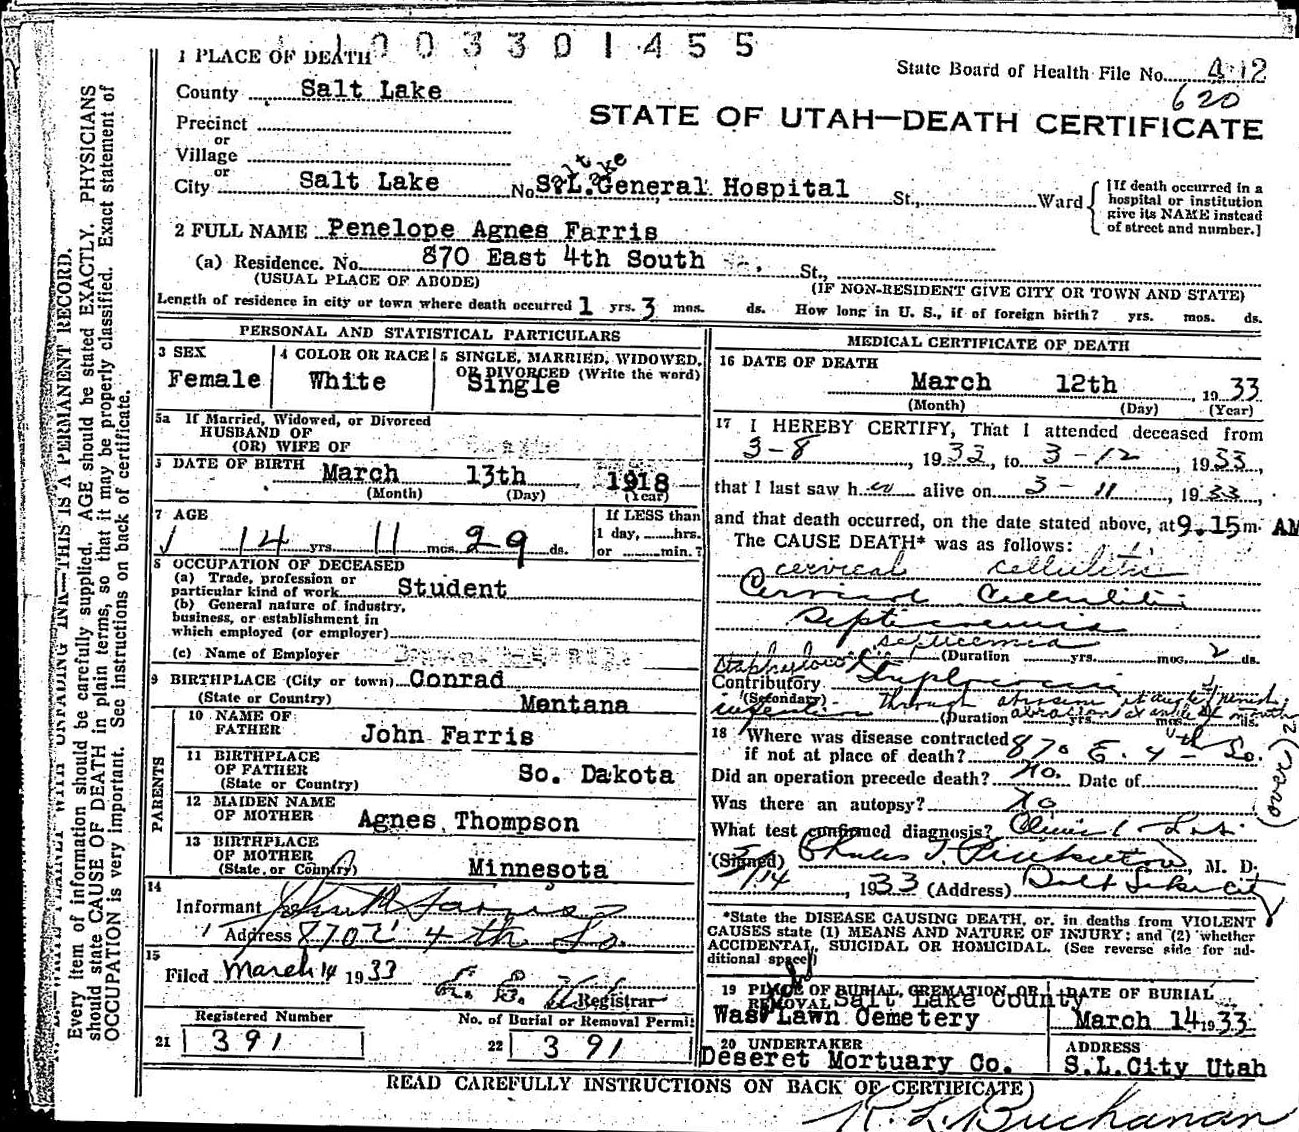 1003301455
1 PLACE OF DEATH
State Board of Health File No. 412
620
County Salt Lake
STATE OF UTAH—DEATH CERTIFICATE
Precinct
or
Village
or
City Salt Lake No. S.L. General Hospital St., Ward
Salt Lake
[If death occurred in a
hospital or institution
give its NAME instead
of street and number.]
2 FULL NAME Penelope Agnes Farris
(a) Residence. No. 870 East 4th South St.,
(USUAL PLACE OF ABODE) (IF NON-RESIDENT GIVE CITY OR TOWN AND STATE)
Length of residence in city or town where death occurred 1 yrs. 3 mos. ds. How long in U. S., if of foreign birth? yrs. mos. ds.
PERSONAL AND STATISTICAL PARTICULARS
3 SEX
Female
4 COLOR OR RACE
White
5 SINGLE, MARRIED, WIDOWED,
OR DIVORCED (Write the word)
Single
5a If Married, Widowed, or Divorced
HUSBAND OF
(OR) WIFE OF
DATE OF BIRTH March 13th 1918
(Month) (Day) (Year)
7 AGE
14 yrs. 11 mos. 29 ds.
If LESS than
1 day, hrs.
or min.?
8 OCCUPATION OF DECEASED
(a) Trade, profession or
particular kind of work Student
(b) General nature of industry,
business, or establishment in
which employed (or employer)
(c) Name of Employer
9 BIRTHPLACE (City or town) Conrad
(State or Country) Mentana
PARENTS
10 NAME OF
FATHER John Farris
11 BIRTHPLACE
OF FATHER So. Dakota
(State or Country)
12 MAIDEN NAME
OF MOTHER Agnes Thompson
13 BIRTHPLACE
OF MOTHER
(State or Country) Minnesota
14
Informant John Farris
Address 870 E 4th So.
15
Filed March 14 1933
Registrar
Registered Number
21 391
No. of Burial or Removal Permit
22 391
MEDICAL CERTIFICATE OF DEATH
16 DATE OF DEATH
March 12th, 1933
(Month) (Day) (Year)
17 I HEREBY CERTIFY, That I attended deceased from
3-8, 1933, to 3-12, 1933,
that I last saw her alive on 3-11, 1933,
and that death occurred, on the date stated above, at 9.15 m. AM
The CAUSE DEATH* was as follows:
cervical cellulitis
Cervical Cellulitis
Septicaemia
septicemia
(Duration yrs. mos. 2 ds.
Contributory
(Secondary)
infection through abrasion at angle of mouth
(Duration yrs. mos. ds.
18 Where was disease contracted
if not at place of death? 870 E. 4th So.
(over)
Did an operation precede death? No. Date of
Was there an autopsy? No
What test confirmed diagnosis?
(Signed) Charles T. Pinkerton, M. D.
3/14, 1933 (Address) Salt Lake City
*State the DISEASE CAUSING DEATH, or, in deaths from VIOLENT
CAUSES state (1) MEANS AND NATURE OF INJURY; and (2) whether
ACCIDENTAL, SUICIDAL OR HOMICIDAL. (See reverse side for ad-
ditional space)
19 PLACE OF BURIAL, CREMATION, OR
REMOVAL Salt Lake County
Was Lawn Cemetery
DATE OF BURIAL
March 14 1933
20 UNDERTAKER
Deseret Mortuary Co.
ADDRESS
S.L.City Utah
READ CAREFULLY INSTRUCTIONS ON BACK OF CERTIFICATE)
R. L. Buchanan
WRITE PLAINLY WITH UNFADING INK—THIS IS A PERMANENT RECORD.
Every item of information should be carefully supplied. AGE should be stated EXACTLY. PHYSICIANS
should state CAUSE OF DEATH in plain terms, so that it may be properly classified. Exact statement of
OCCUPATION is very important. See instructions on back of certificate.